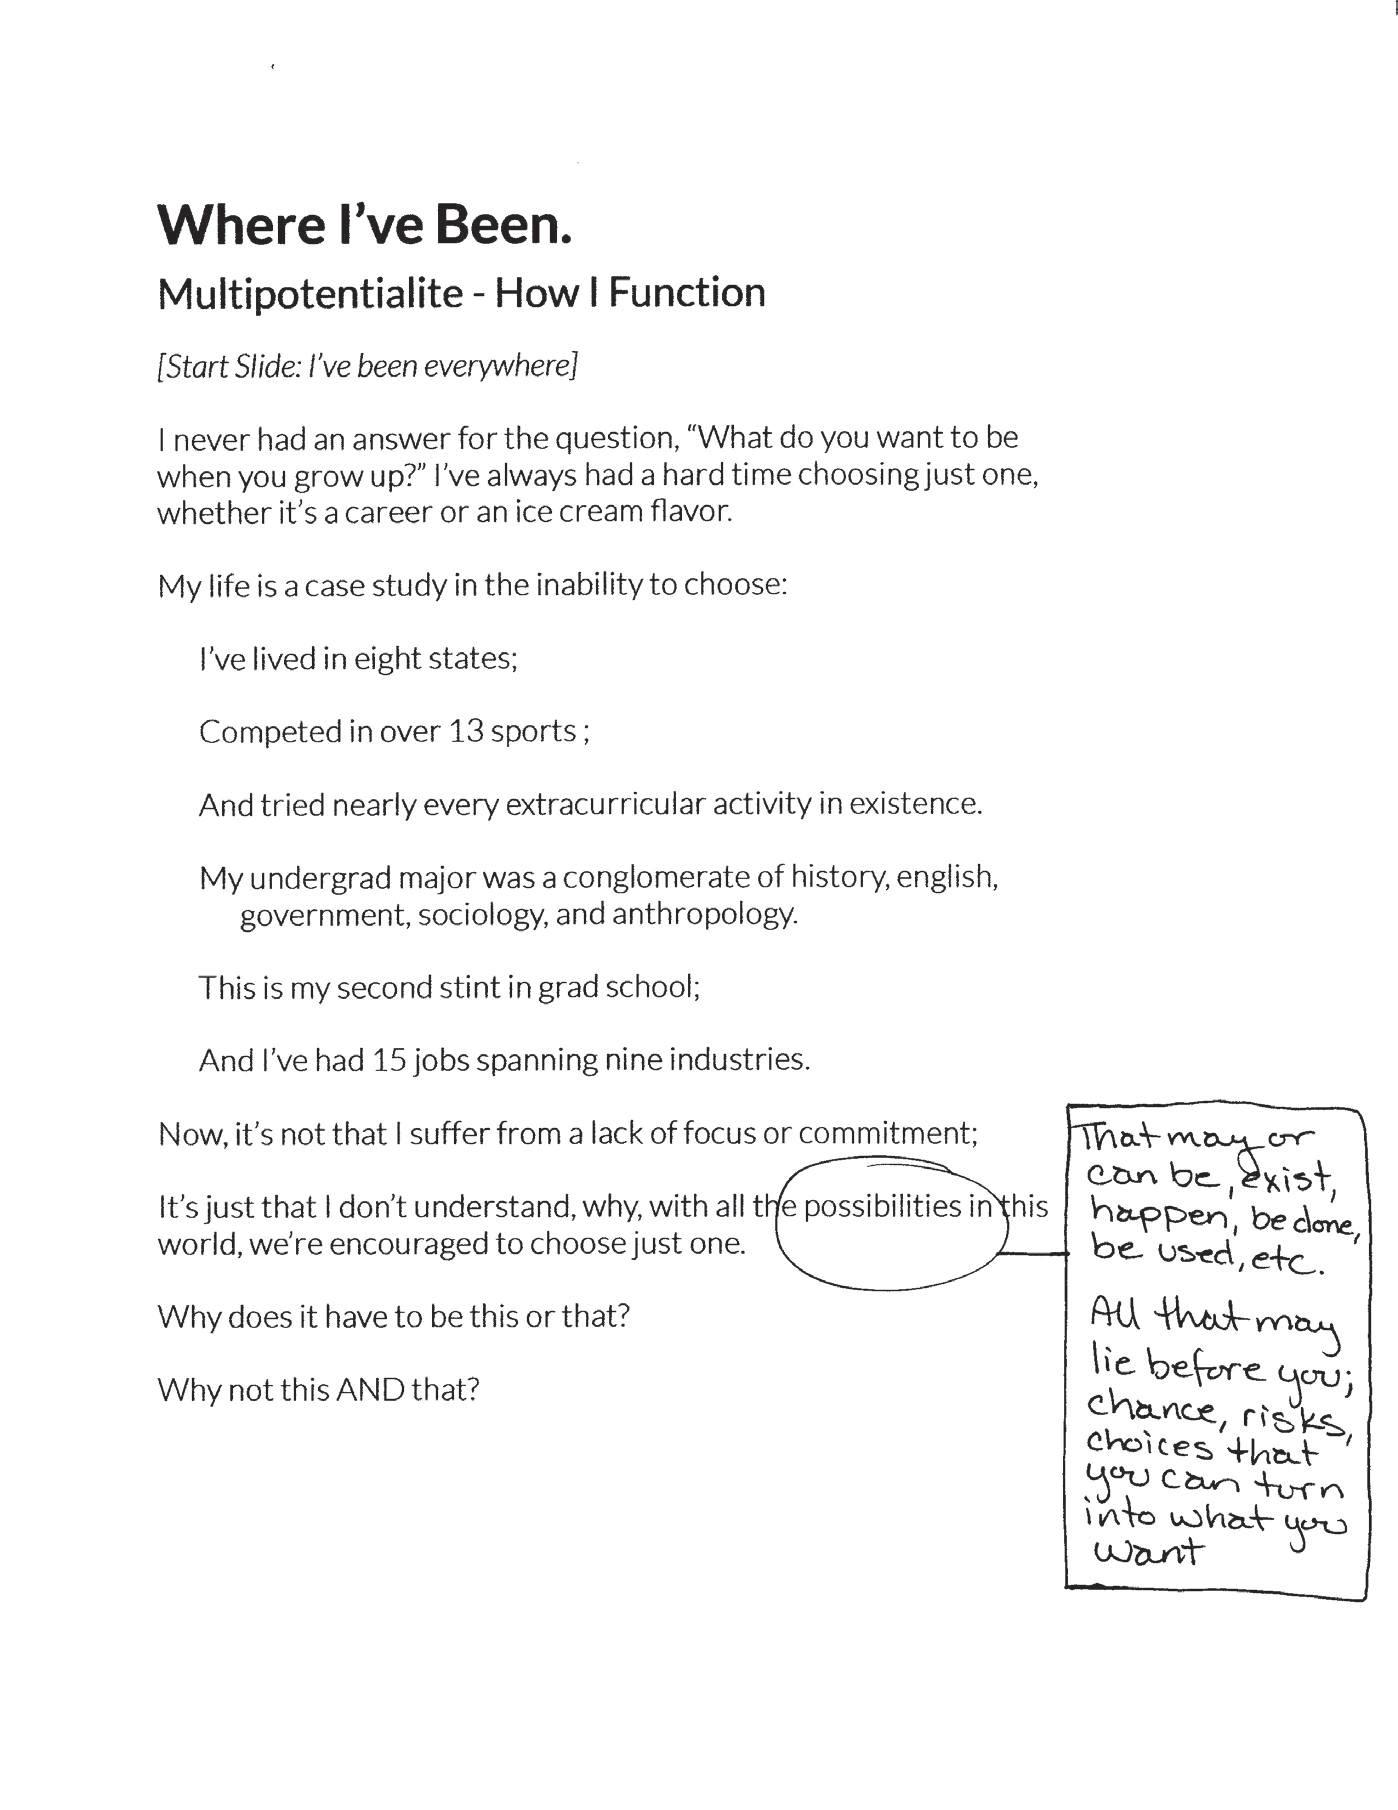 Where I’ve Been.
Multipotentialite - How I Function
[Start Slide: I’ve been everywhere]
I never had an answer for the question, “What do you want to be
when you grow up?” I’ve always had a hard time choosing just one,
whether it’s a career or an ice cream flavor.
My life is a case study in the inability to choose:
I’ve lived in eight states;
Competed in over 13 sports ;
And tried nearly every extracurricular activity in existence.
My undergrad major was a conglomerate of history, english,
government, sociology, and anthropology.
This is my second stint in grad school;
And I’ve had 15 jobs spanning nine industries.
Now, it’s not that I suffer from a lack of focus or commitment;
It’s just that I don’t understand, why, with all the possibilities in this
world, we’re encouraged to choose just one.
Why does it have to be this or that?
Why not this AND that?
That may or
can be, exist,
happen, be done,
be used, etc.
All that may
lie before you;
chance, risks,
choices that
you can turn
into what you
want